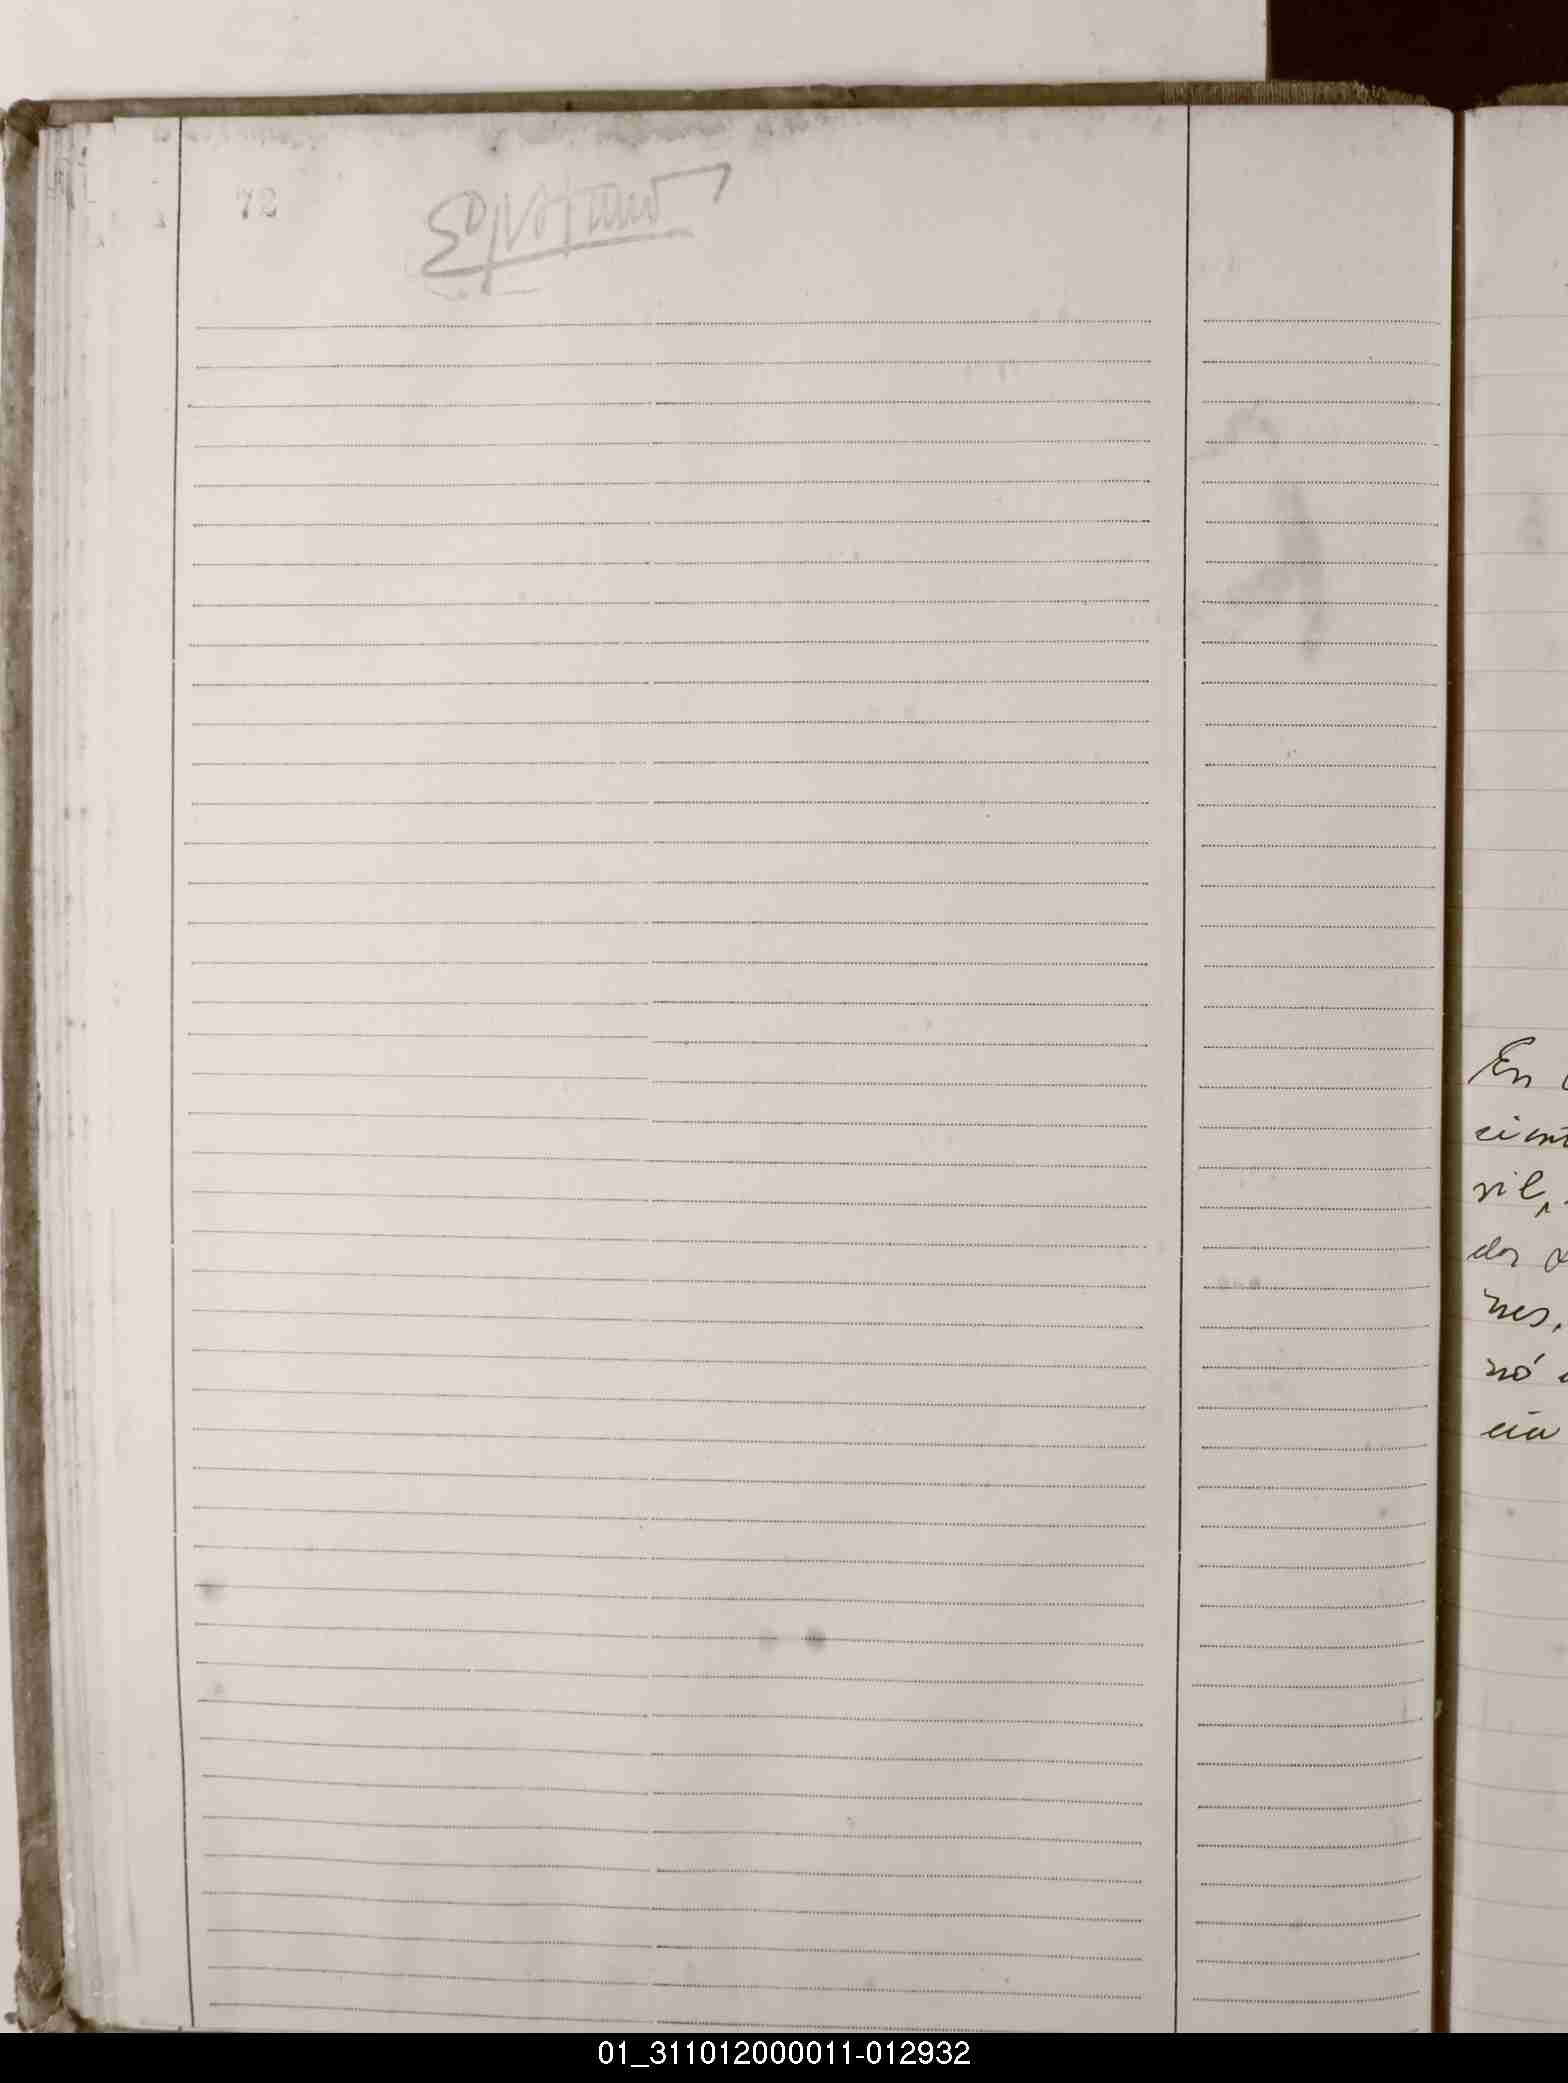 72
En
cient
ril,
dos
nes,
nó
cia
01_311012000011-012932